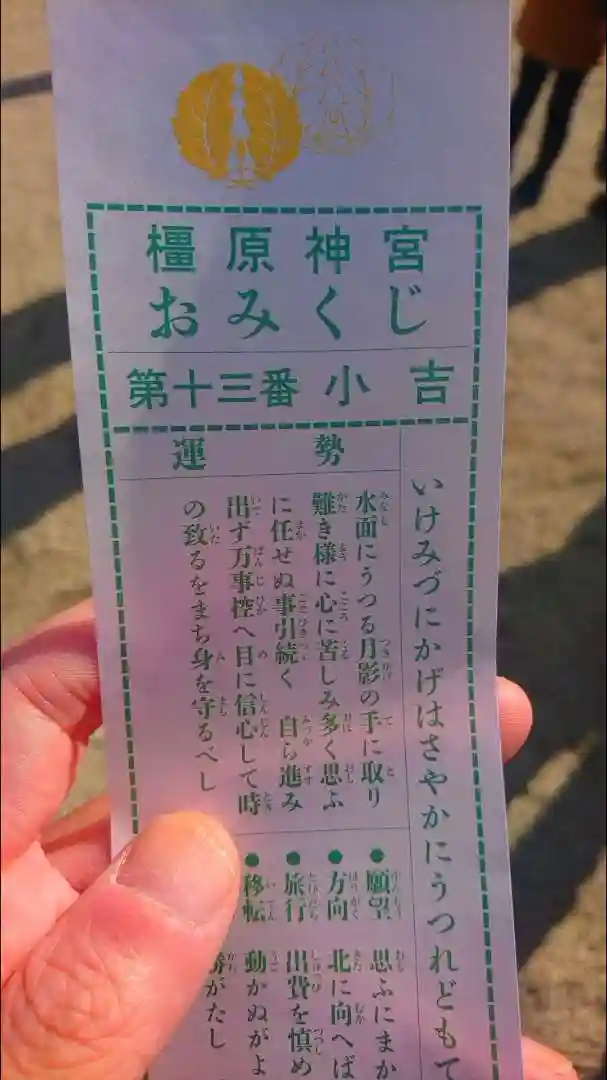 橿原神宮
おみくじ
第十三番 小吉
いけみづにかげはさやかにうつれどもて
運勢
水面にうつる月影の手に取り
難き様に心に苦しみ多く思ふ
に任せぬ事引続く 自ら進み
出ず万事控へ目に信心して時
の致るをまち身を守るべし
●願望 思ふにまか
●方向 北に向へば
●旅行 出費を慎め
●移転 動かぬがよ
勝がたし